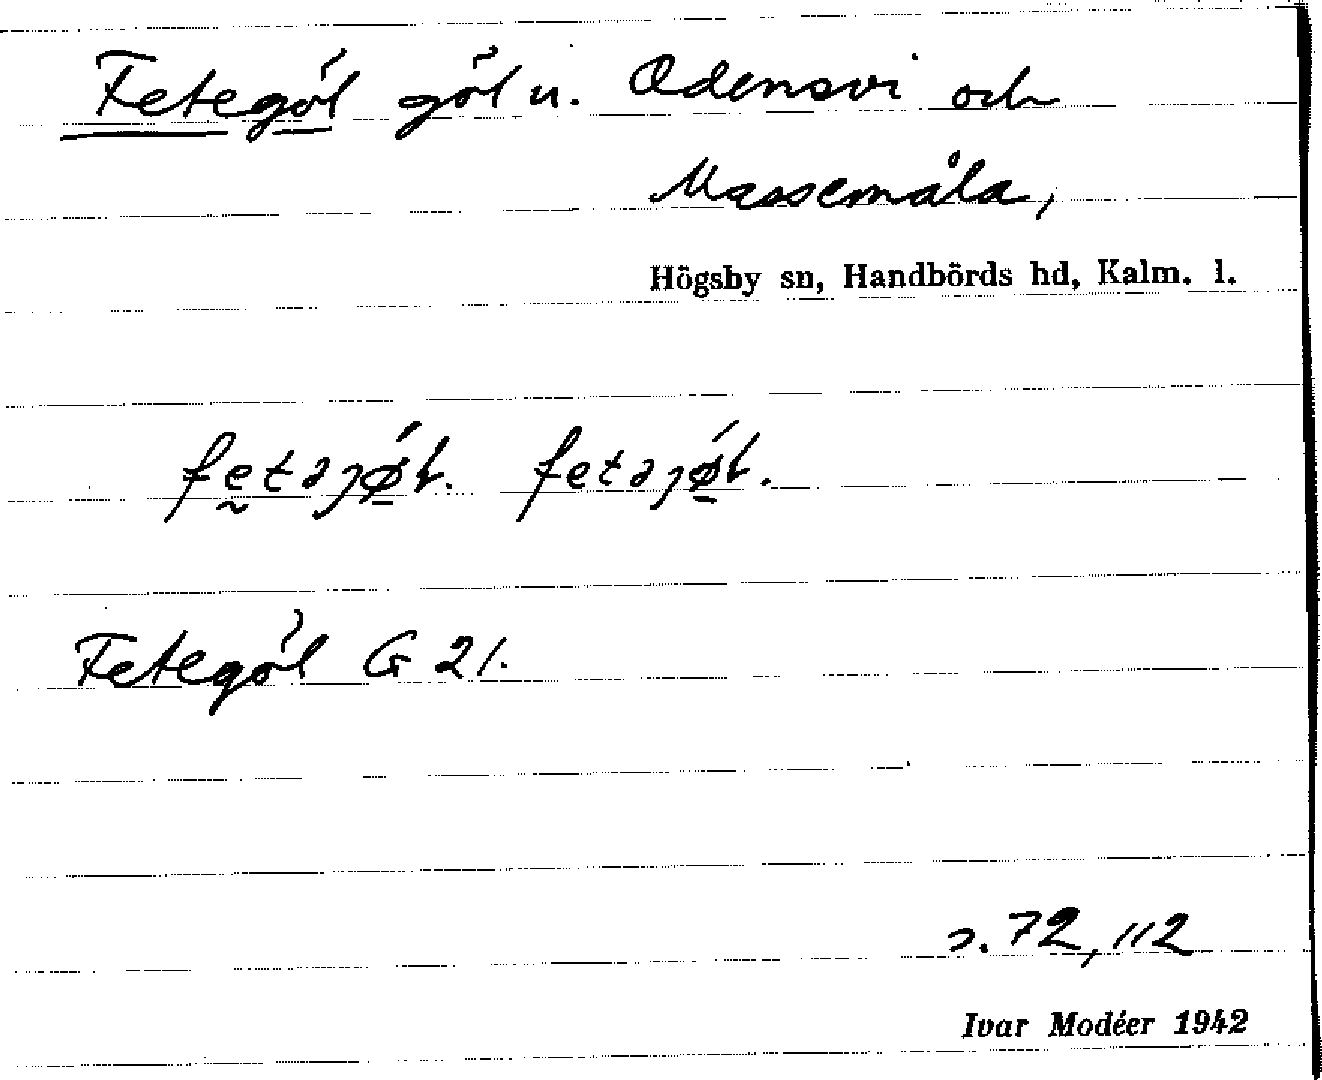 Fetegöl göl u. Odensvi och
Massemåla,
Högsby sn, Handbörds hd, Kalm. l.
fetəjǿ̱ɫ. fetəjǿ̱ɫ.
Fetegöl G 21.
s. 72, 112
Ivar Modéer 1942